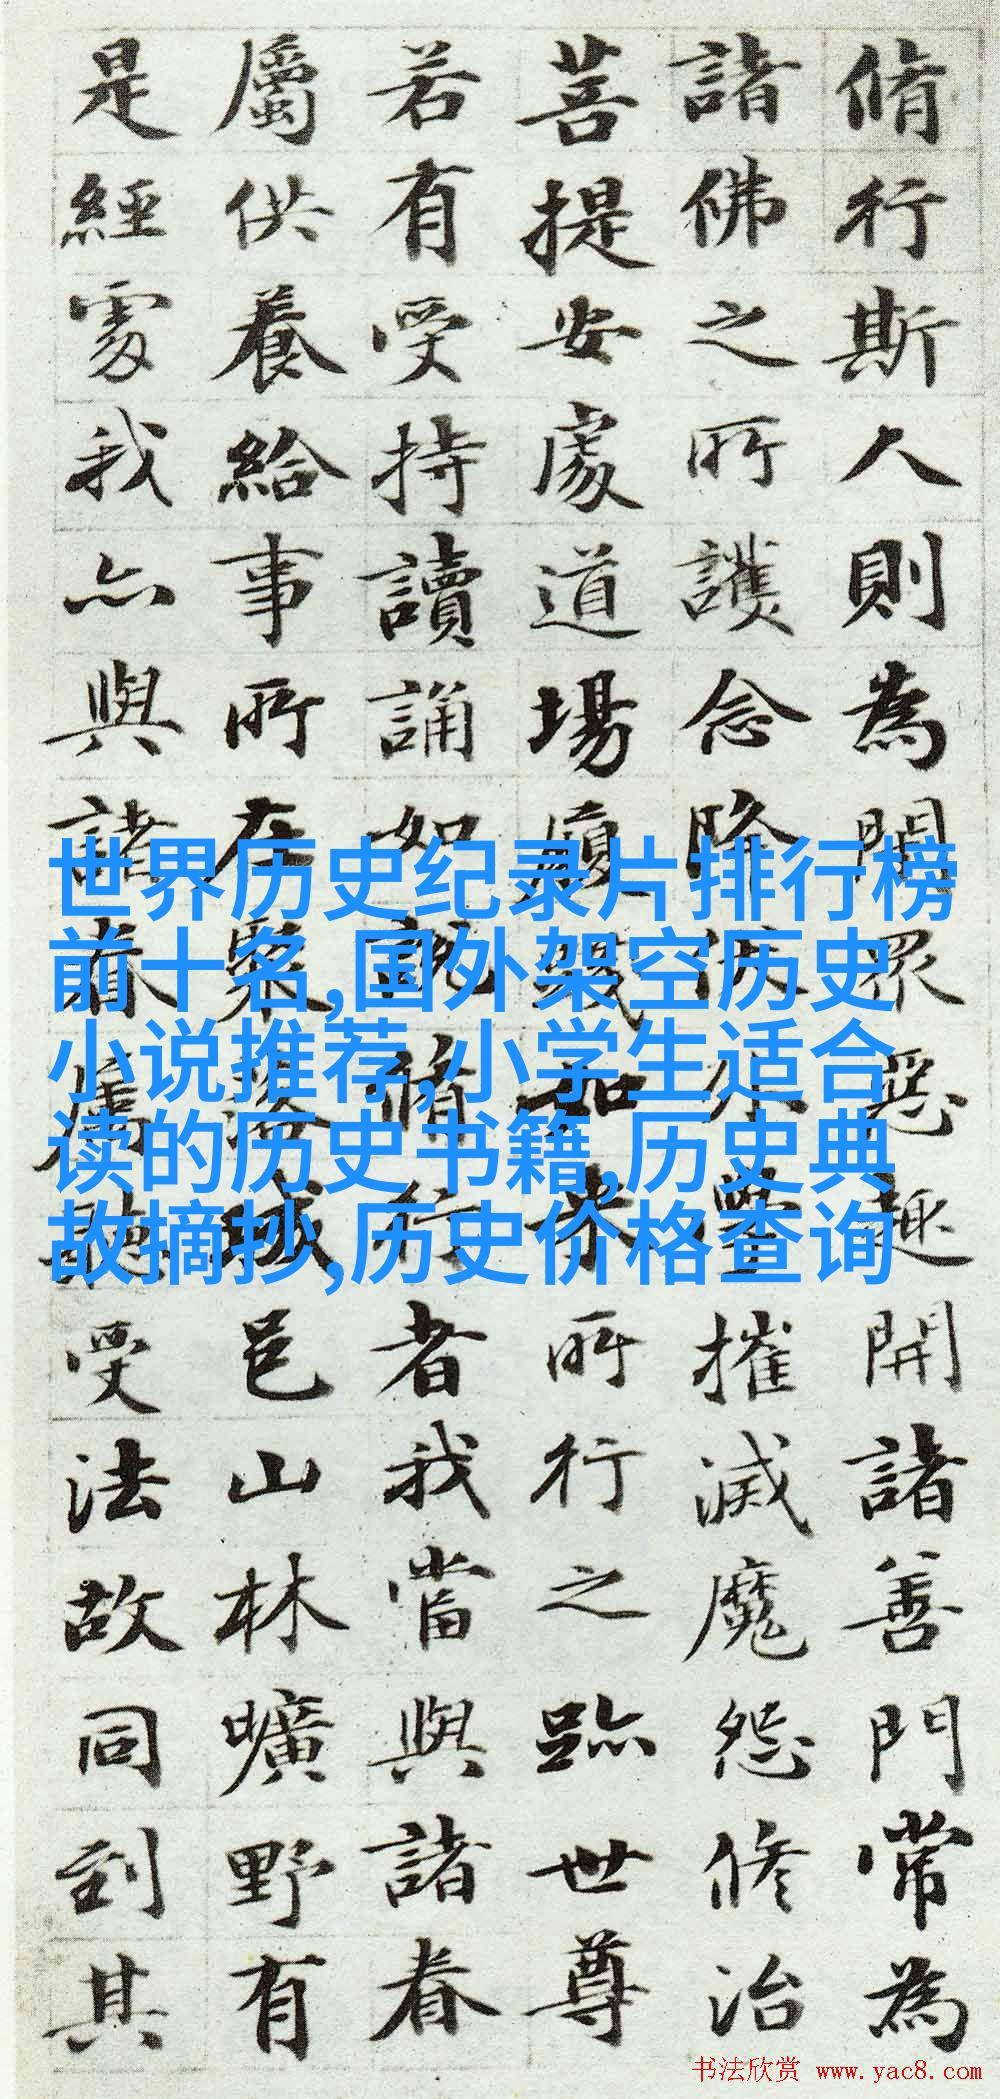 脩行斯人則為閇眾惡趣開諸善門常為
諸佛之所護念降伏外學摧滅魔怨修治
菩提安處道場履踐如來所行之跡世尊
若有受持讀誦如說脩行者我當與諸眷
屬供養給事所在聚落城邑山林曠野有
是經處我亦與諸眷屬聽受法故同到其
世界历史纪录片排行榜
前十名,国外架空历史
小说推荐,小学生适合
读的历史书籍,历史典
故摘抄,历史价格查询
书法欣赏 www.yac8.com